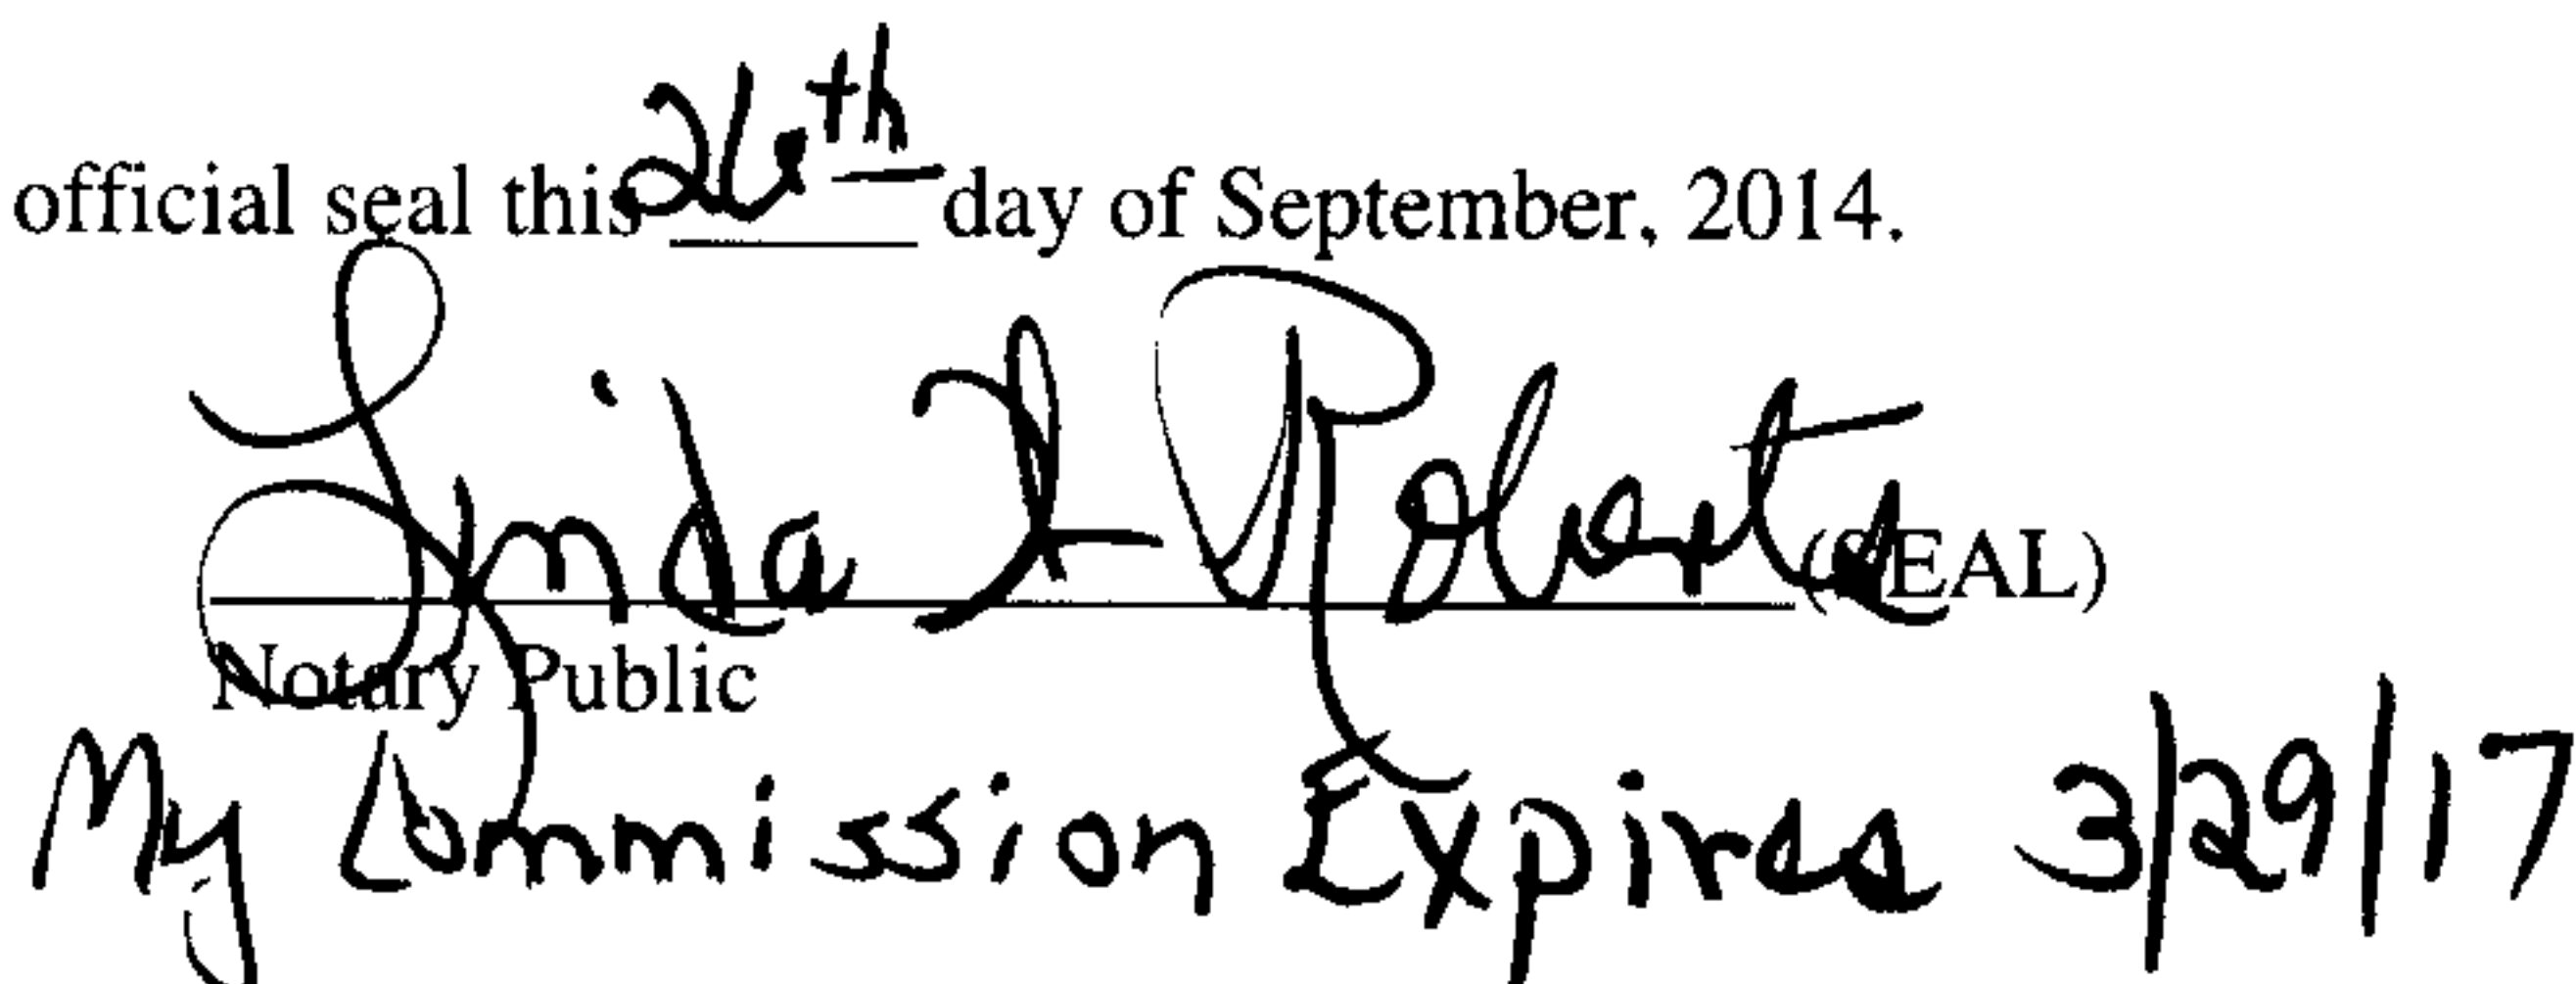 official seal this 26th day of September, 2014.
Linda L Roberts (SEAL)
Notary Public
My Commission Expires 3/29/17